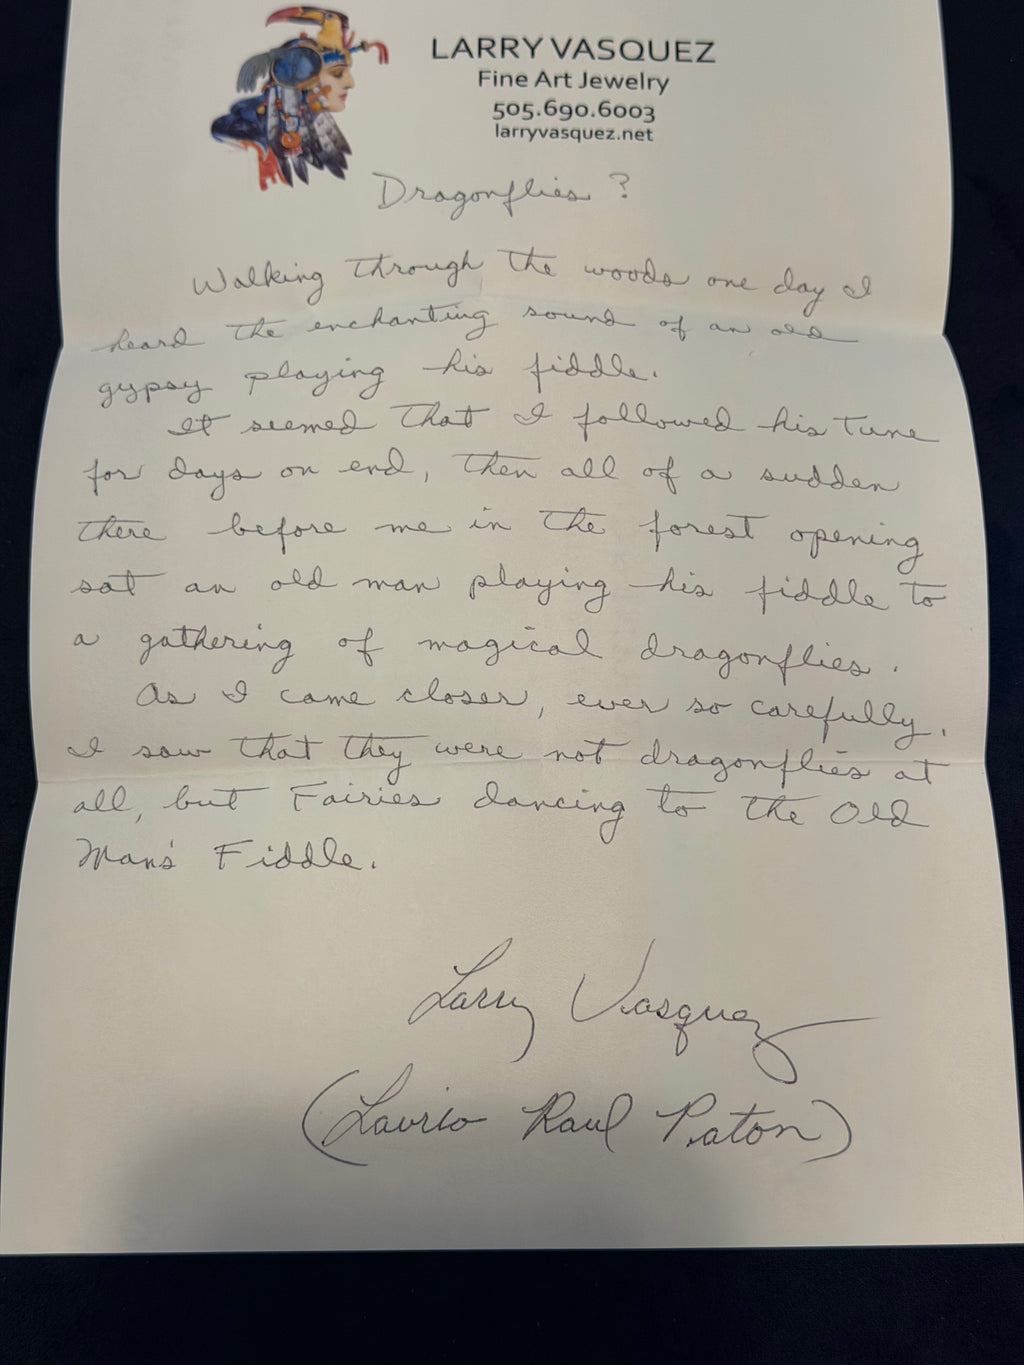 LARRY VASQUEZ
Fine Art Jewelry
505.690.6003
larryvasquez.net
Dragonflies ?
Walking through the woods one day I
heard the enchanting sound of an old
gypsy playing his fiddle.
It seemed that I followed his tune
for days on end, then all of a sudden
there before me in the forest opening
sat an old man playing his fiddle to
a gathering of magical dragonflies.
As I came closer, ever so carefully.
I saw that they were not dragonflies at
all, but Fairies dancing to the Old
Man's Fiddle.
Larry Vasquez
(Raul Paton)